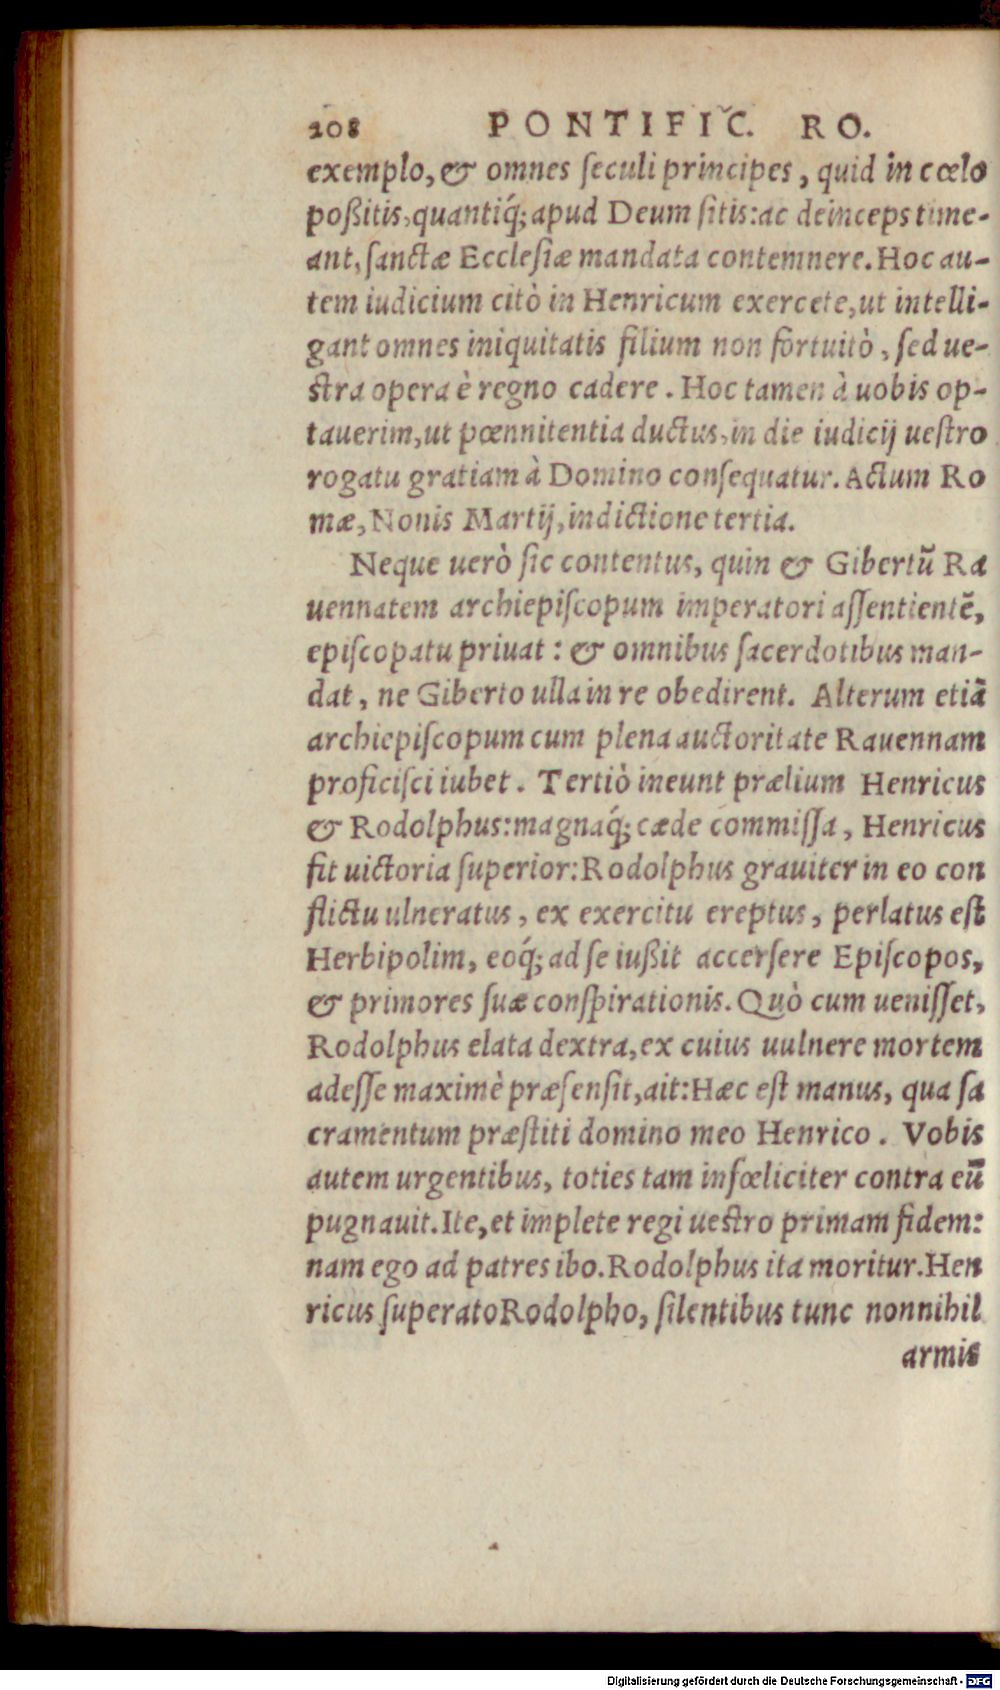 208 PONTIFIC. RO.
exemplo, & omnes ſeculi principes, quid in cœlo
poßitis, quantiq́; apud Deum ſitis: ac deinceps time-
ant, ſanctæ Eccleſiæ mandata contemnere. Hoc au-
tem iudicium citò in Henricum exercete, ut intelli-
gant omnes iniquitatis filium non fortuitò, ſed ue-
ſtra opera è regno cadere. Hoc tamen à uobis op-
tauerim, ut pœnnitentia ductus, in die iudicij ueſtro
rogatu gratiam à Domino conſequatur. Actum Ro
mæ, Nonis Martij, indictione tertia.
Neque uerò ſic contentus, quin & Gibertū Ra
uennatem archiepiſcopum imperatori aſſentientē,
epiſcopatu priuat: & omnibus ſacerdotibus man-
dat, ne Giberto ulla in re obedirent. Alterum etiā
archiepiſcopum cum plena auctoritate Rauennam
proficiſci iubet. Tertiò ineunt prælium Henricus
& Rodolphus: magnaq́; cæde commiſſa, Henricus
fit uictoria ſuperior: Rodolphus grauiter in eo con
flictu ulneratus, ex exercitu ereptus, perlatus eſt
Herbipolim, eoq́; ad ſe iußit accerſere Epiſcopos,
& primores ſuæ conſpirationis. Quò cum ueniſſet,
Rodolphus elata dextra, ex cuius uulnere mortem
adeſſe maximè præſenſit, ait: Hæc eſt manus, qua ſa
cramentum præſtiti domino meo Henrico. Vobis
autem urgentibus, toties tam infœliciter contra eū
pugnauit. Ite, et implete regi ueſtro primam fidem:
nam ego ad patres ibo. Rodolphus ita moritur. Hen
ricus ſuperato Rodolpho, ſilentibus tunc nonnihil
armis
Digitalisierung gefördert durch die Deutsche Forschungsgemeinschaft - DFG